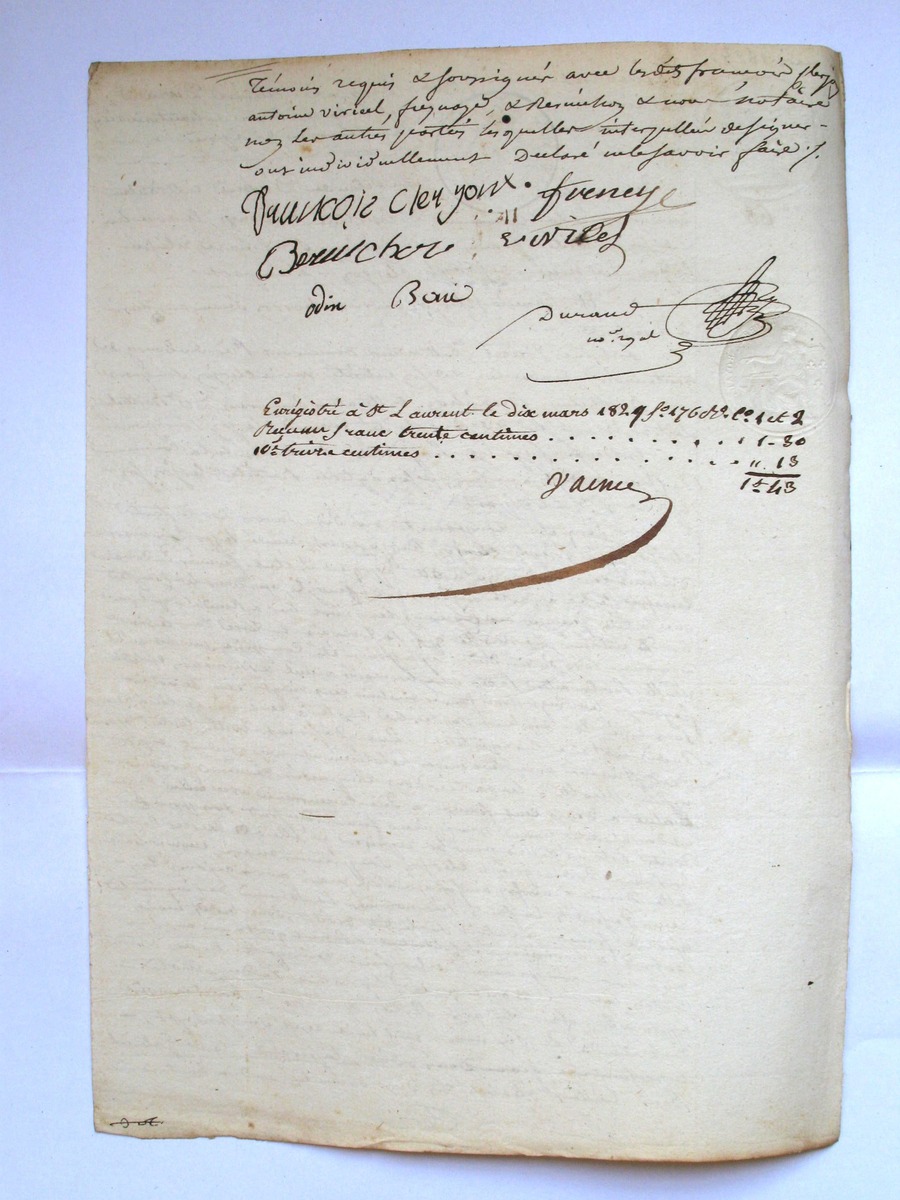 Témoins requis & soussignés avec lesdits françois
antoine viricel, & nous notaire
non les autres parties lesquelles interpellées de signer
ont individuellement Declaré ne le savoir faire ./.
françois Clerjont
viricel
odin
Durand
Enrégistré à St Laurent le dix mars 1829 fo. 176 Ro. Co. 1 et 2
Reçu un franc trente centimes 1-30
10e treize centimes " 13
1f 43